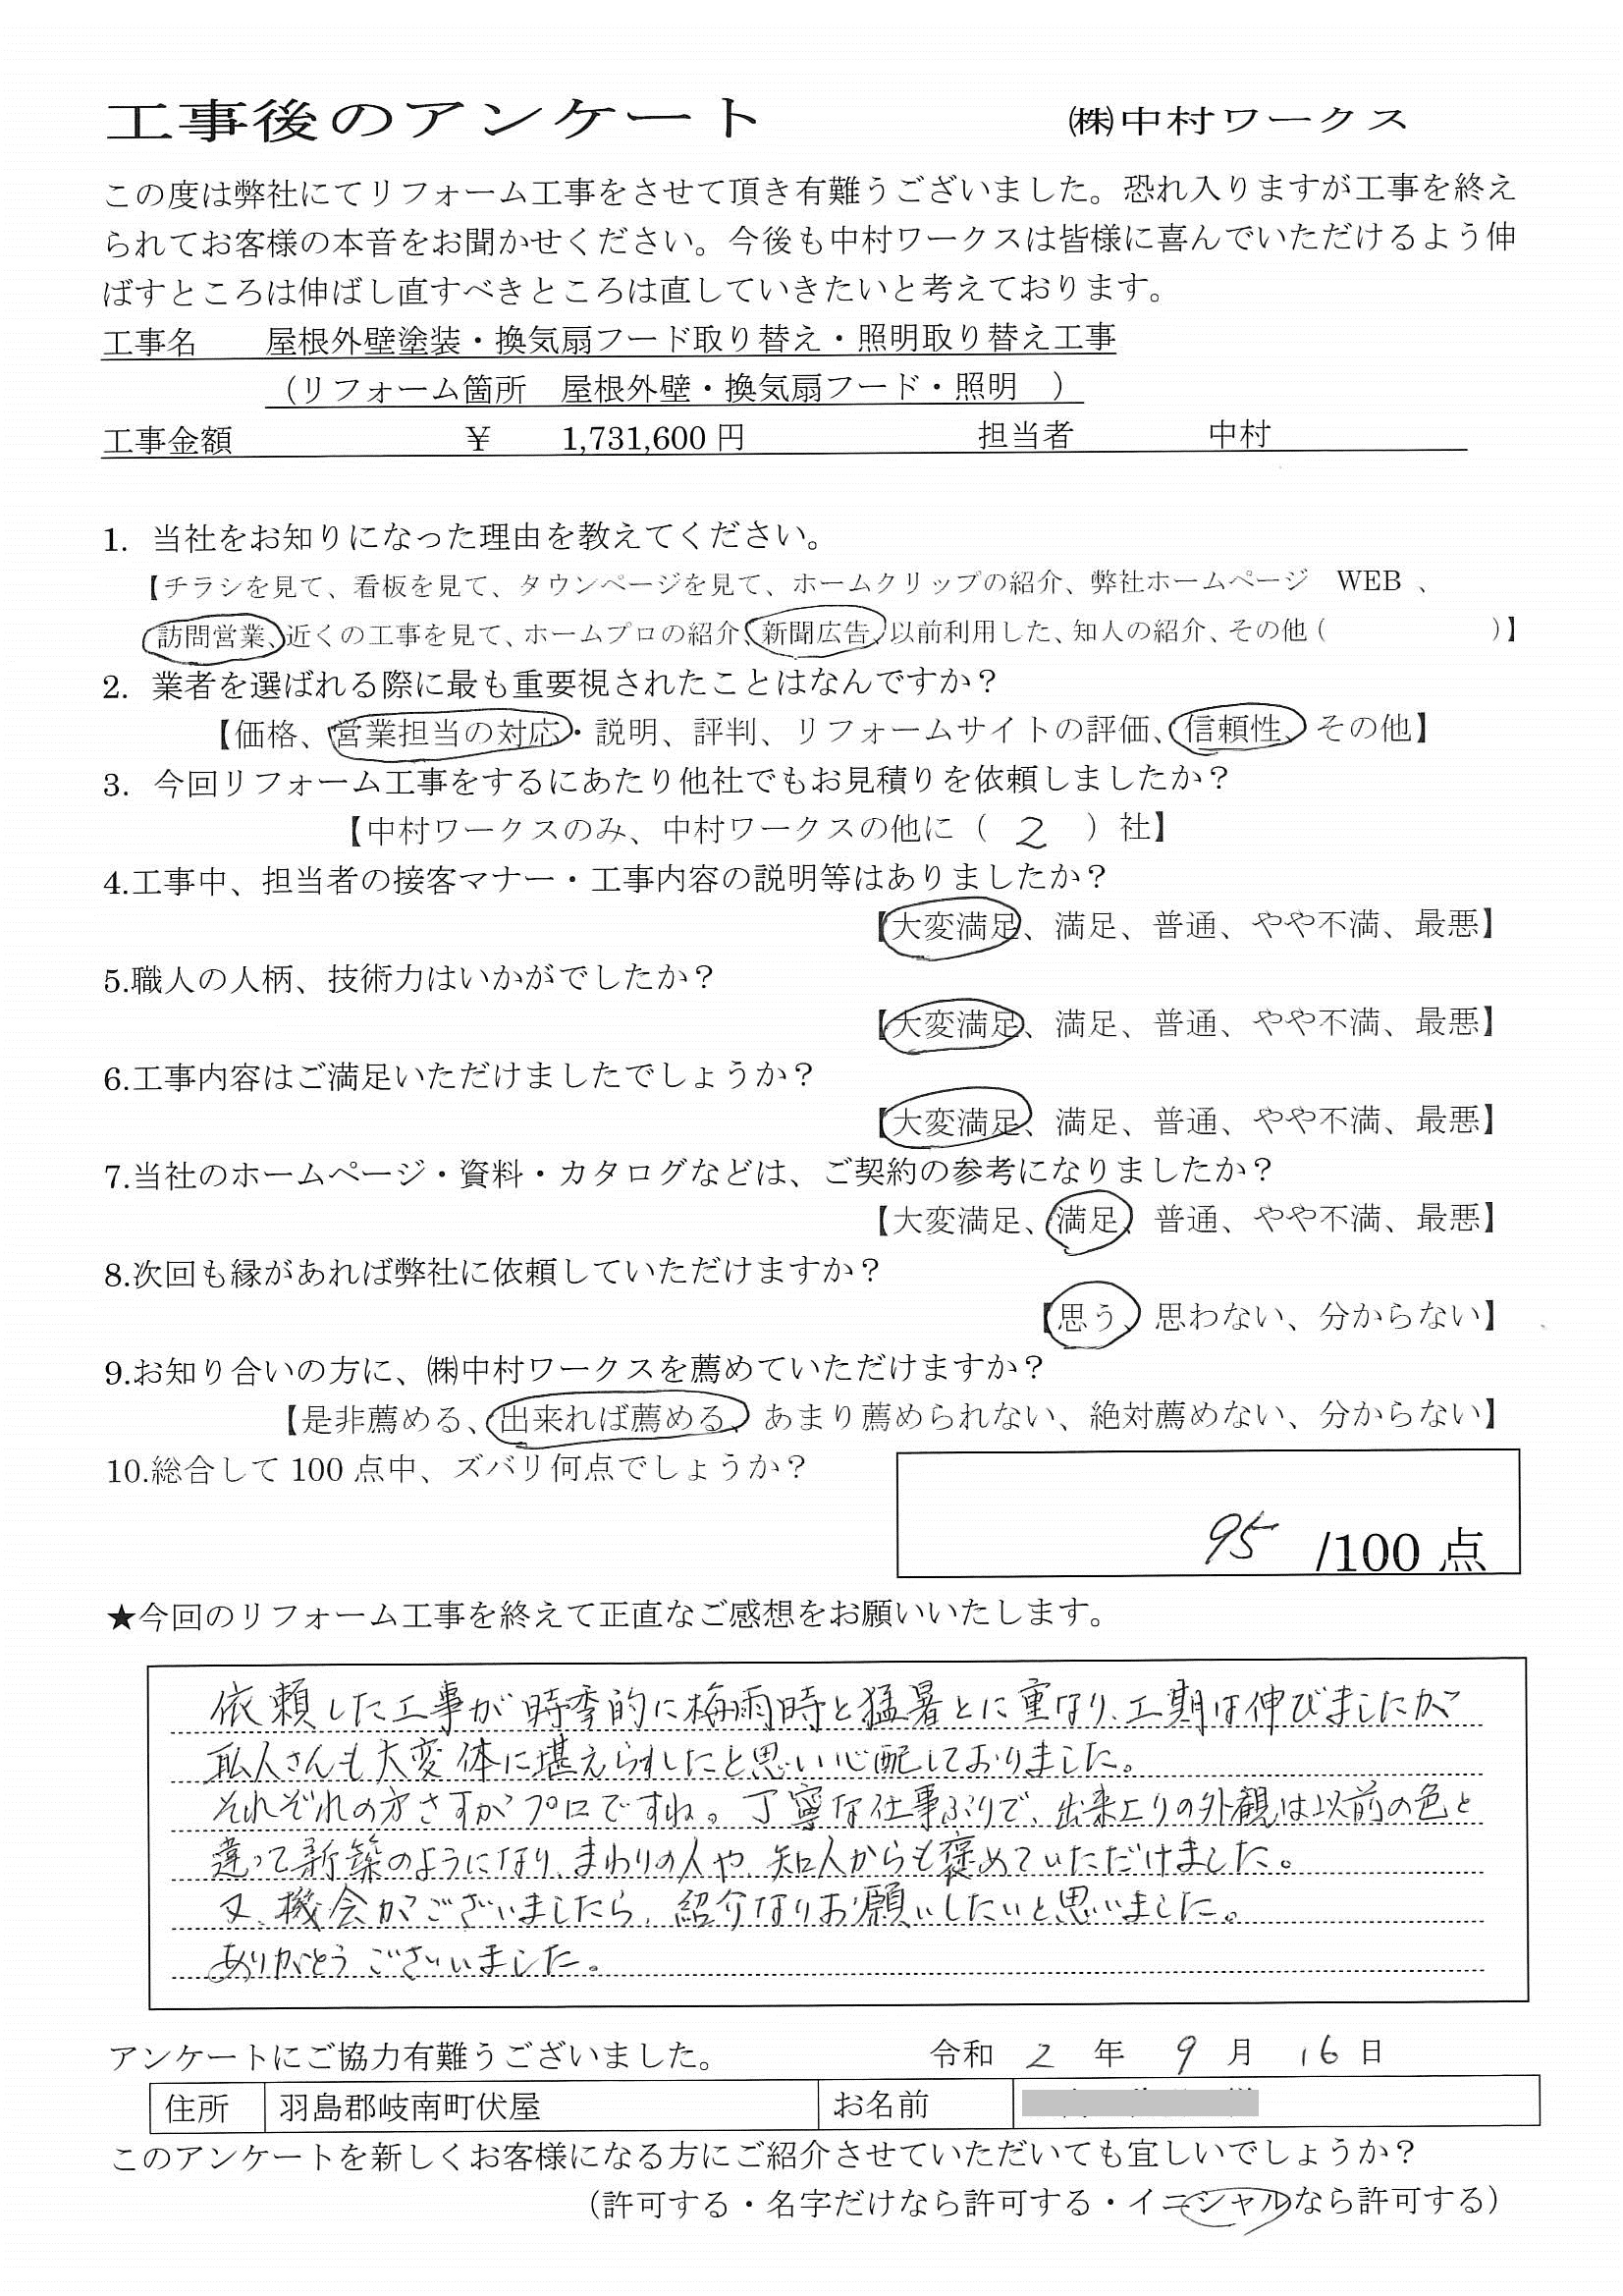 工事後のアンケート　㈱中村ワークス
この度は弊社にてリフォーム工事をさせて頂き有難うございました。恐れ入りますが工事を終え
られてお客様の本音をお聞かせください。今後も中村ワークスは皆様に喜んでいただけるよう伸
ばすところは伸ばし直すべきところは直していきたいと考えております。
工事名　屋根外壁塗装・換気扇フード取り替え・照明取り替え工事
（リフォーム箇所　屋根外壁・換気扇フード・照明　）
工事金額　￥　1,731,600 円　担当者　中村
1. 当社をお知りになった理由を教えてください。
【チラシを見て、看板を見て、タウンページを見て、ホームクリップの紹介、弊社ホームページ　WEB 、
訪問営業、近くの工事を見て、ホームプロの紹介、新聞広告、以前利用した、知人の紹介、その他（　　　）】
2. 業者を選ばれる際に最も重要視されたことはなんですか？
【価格、営業担当の対応・説明、評判、リフォームサイトの評価、信頼性、その他】
3. 今回リフォーム工事をするにあたり他社でもお見積りを依頼しましたか？
【中村ワークスのみ、中村ワークスの他に（ 2 ）社】
4.工事中、担当者の接客マナー・工事内容の説明等はありましたか？
【大変満足、満足、普通、やや不満、最悪】
5.職人の人柄、技術力はいかがでしたか？
【大変満足、満足、普通、やや不満、最悪】
6.工事内容はご満足いただけましたでしょうか？
【大変満足、満足、普通、やや不満、最悪】
7.当社のホームページ・資料・カタログなどは、ご契約の参考になりましたか？
【大変満足、満足、普通、やや不満、最悪】
8.次回も縁があれば弊社に依頼していただけますか？
【思う、思わない、分からない】
9.お知り合いの方に、㈱中村ワークスを薦めていただけますか？
【是非薦める、出来れば薦める、あまり薦められない、絶対薦めない、分からない】
10.総合して 100 点中、ズバリ何点でしょうか？
95 /100 点
★今回のリフォーム工事を終えて正直なご感想をお願いいたします。
依頼した工事が時季的に梅雨時と猛暑とに重なり、工期は伸びましたが
職人さんも大変体に堪えられたと思い心配しておりました。
それぞれの方さすがプロですね。丁寧な仕事ぶりで、出来上りの外観は以前の色と
違って新築のようになり、まわりの人や、知人からも褒めていただけました。
又、機会がございましたら、紹介なりお願いしたいと思いました。
ありがとうございました。
アンケートにご協力有難うございました。　令和 2 年 9 月 16 日
住所　羽島郡岐南町伏屋　お名前
このアンケートを新しくお客様になる方にご紹介させていただいても宜しいでしょうか？
（許可する・名字だけなら許可する・イニシャルなら許可する）